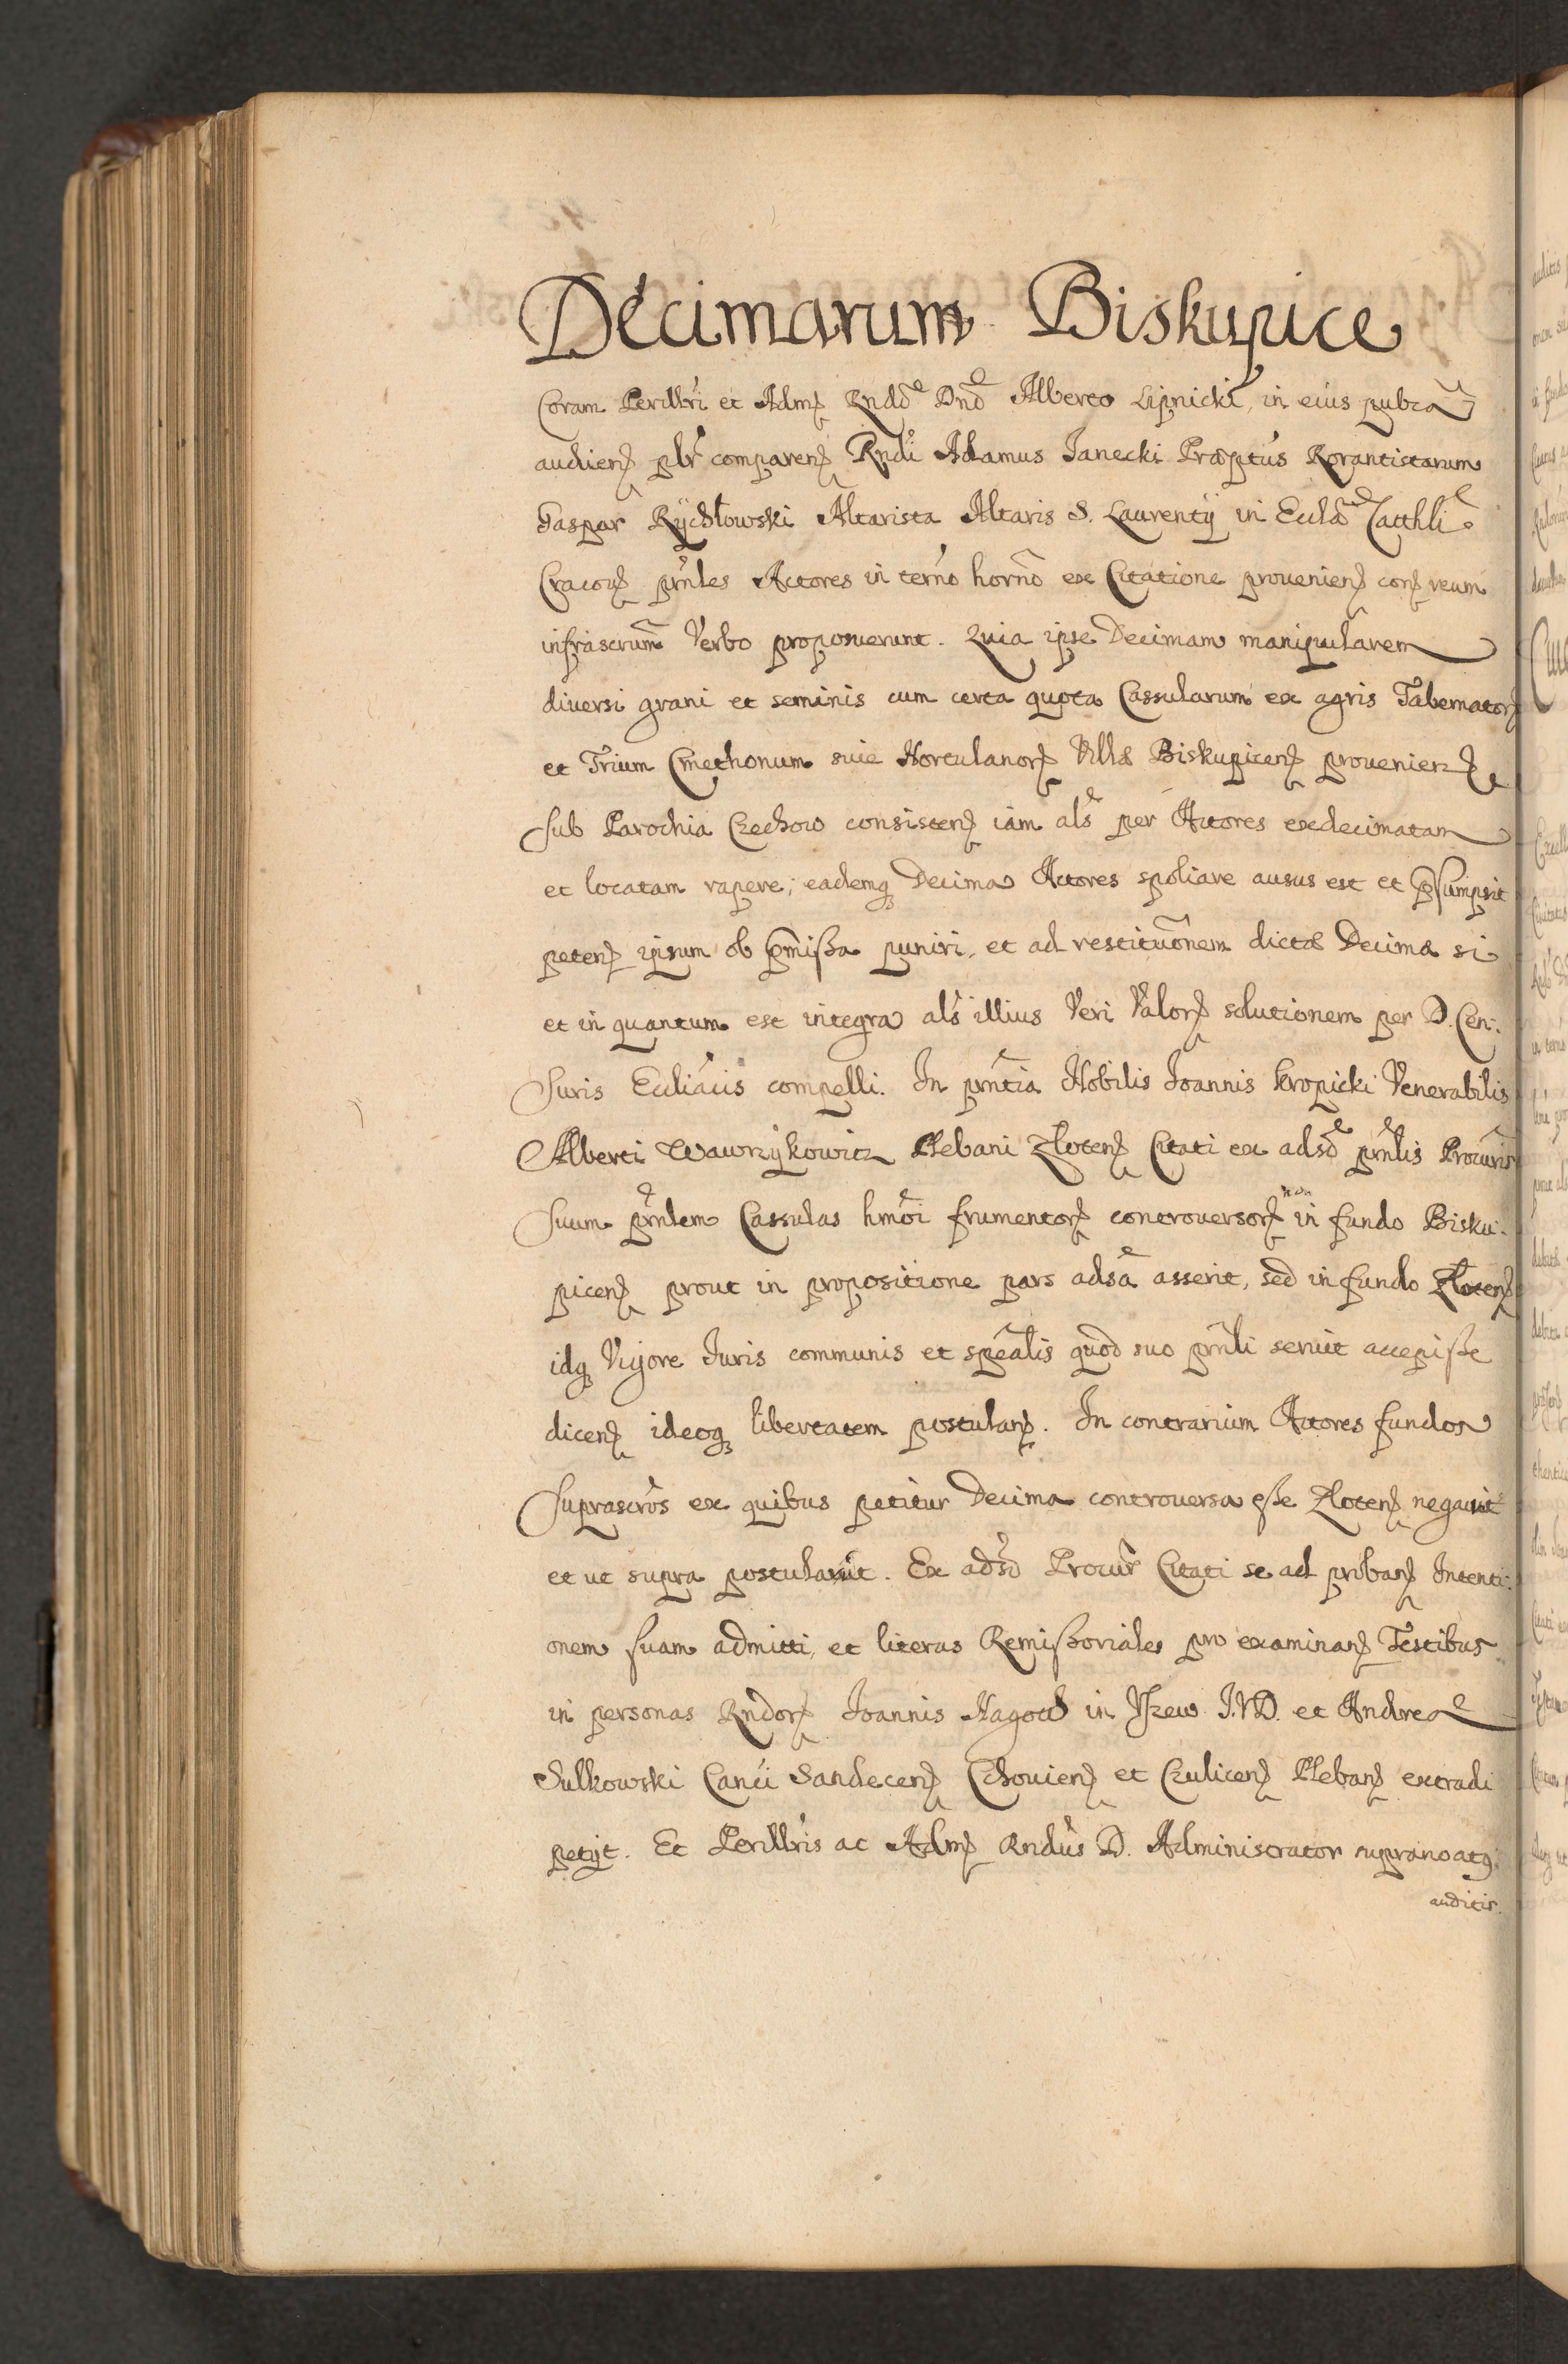 Decimarum Biskupice
Coram Perillri et Adm Rndo Dno Alberto Lipnicki, in eius pubca
audien plr comparen Rndi Adamus Janecki Præptus Rorantistarum
Gaspar Rychłowski Altarista Altaris S. Laurentij in Eccla Catthli
Cracoven prnles Actores in termo horno ex Citatione provenien con reum
infrascrum Verbo proposuerunt. Quia ipse Decimam manipularem
diversi grani et seminis cum certa quota Cassularum ex agris Tabernator
et Trium Cmethonum sive Hortulanor Villæ Biskupicen provenien
sub Parochia Czechow consisten iam als per Actores exdecimatam
et locatam rapere, eademq Decima Actores spoliare ausus est et præsumpsit
peten ipsum ob præmissa puniri, et ad restitutionem dictæ Decimæ si
et in quantum est integra als illius Veri Valor solutionem per D. Cen:
suris Ecclicis compelli. In prntia Nobilis Joannis Kropicki Venerabilis
Alberti Wawrzykowicz Plebani Zloten Citati ex adso prnlis Procuris
suum prnlem Cassulas hmoi frumentor controversor non in fundo Bisku:
picen prout in propositione pars adsa asserit, sed in fundo Zloten
idq Vigore Juris communis et spealis quod suo prnli servit accepisse
dicen ideoq libertatem postulan. In contrarium Actores fundos
suprascros ex quibus petitur Decima controversa esse Zloten negavit
et ut supra postulavit. Ex adso Procur Citati se ad proban Intenti:
onem suam admitti, et literas Remissoriales pro examinan Testibus
in personas Rndor Joannis Nagoth in Uszew J.V.D. et Andreæ
Sulkowski Canci Sandecen Cchovien et Czulicen Pleban extradi
petijt. Et Perillris ac Adm Rndus D. Administrator supranoatq
auditis.